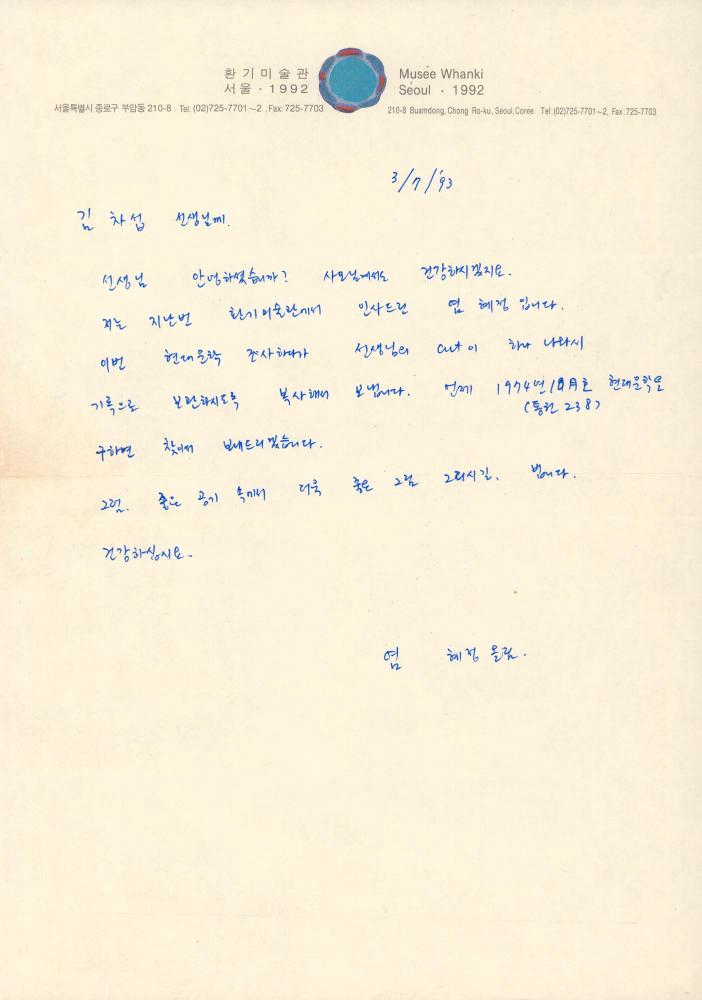 환기미술관
서울 · 1992
서울특별시 종로구 부암동 210-8 . Tel: (02)725-7701~2 , Fax: 725-7703
Musée Whanki
Séoul · 1992
210-8 Buamdong, Chong Ro-ku, Séoul, Corée Tel:(02)725-7701~2, Fax:725-7703
3/7/'93
김 차섭 선생님께.
선생님 안녕하셨습니까? 사모님께서도 건강하시겠지요.
저는 지난번 환기미술관에서 인사드린 염 혜정 입니다.
이번 현대문학 조사하다가 선생님의 cut이 하나 나와서
기록으로 보관하시도록 복사해서 보냅니다. 언제 1974년 10月호 현대문학을
(통권 238)
구하면 찾아서 보내드리겠습니다.
그럼. 좋은 공기 속에서 더욱 좋은 그림 그리시길. 빕니다.
건강하십시요.
염 혜정 올림.